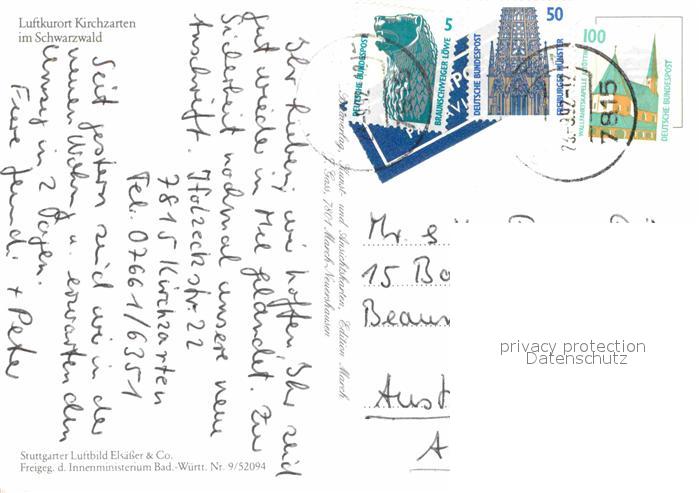 Luftkurort Kirchzarten
im Schwarzwald
Ihr Lieben, wir hoffen, Ihr seid
gut wieder in Mel gelandet. Zur
Sicherheit nochmal unsere neue
Anschrift. Holzeckstr. 22
7815 Kirchzarten
Tel. 07661/6351
Seit gestern sind wir in der
neuen Wohng u. erwarten den
Umzug in 2 Tagen.
Eure + Peter
Stuttgarter Luftbild Elsäßer & Co.
Freigeg. d. Innenministerium Bad.-Württ. Nr. 9/52094
Kunst- und Ansichtskarten, Edition March
7801 March-Neuershausen
DEUTSCHE BUNDESPOST
5
BRAUNSCHWEIGER LÖWE
DEUTSCHE BUNDESPOST
50
FREIBURGER MÜNSTER
100
WALLFAHRTSKAPELLE ALTÖTTING
DEUTSCHE BUNDESPOST
7815
Mr. &
15 Bo
Beaum
Aust
A
privacy protection
Datenschutz